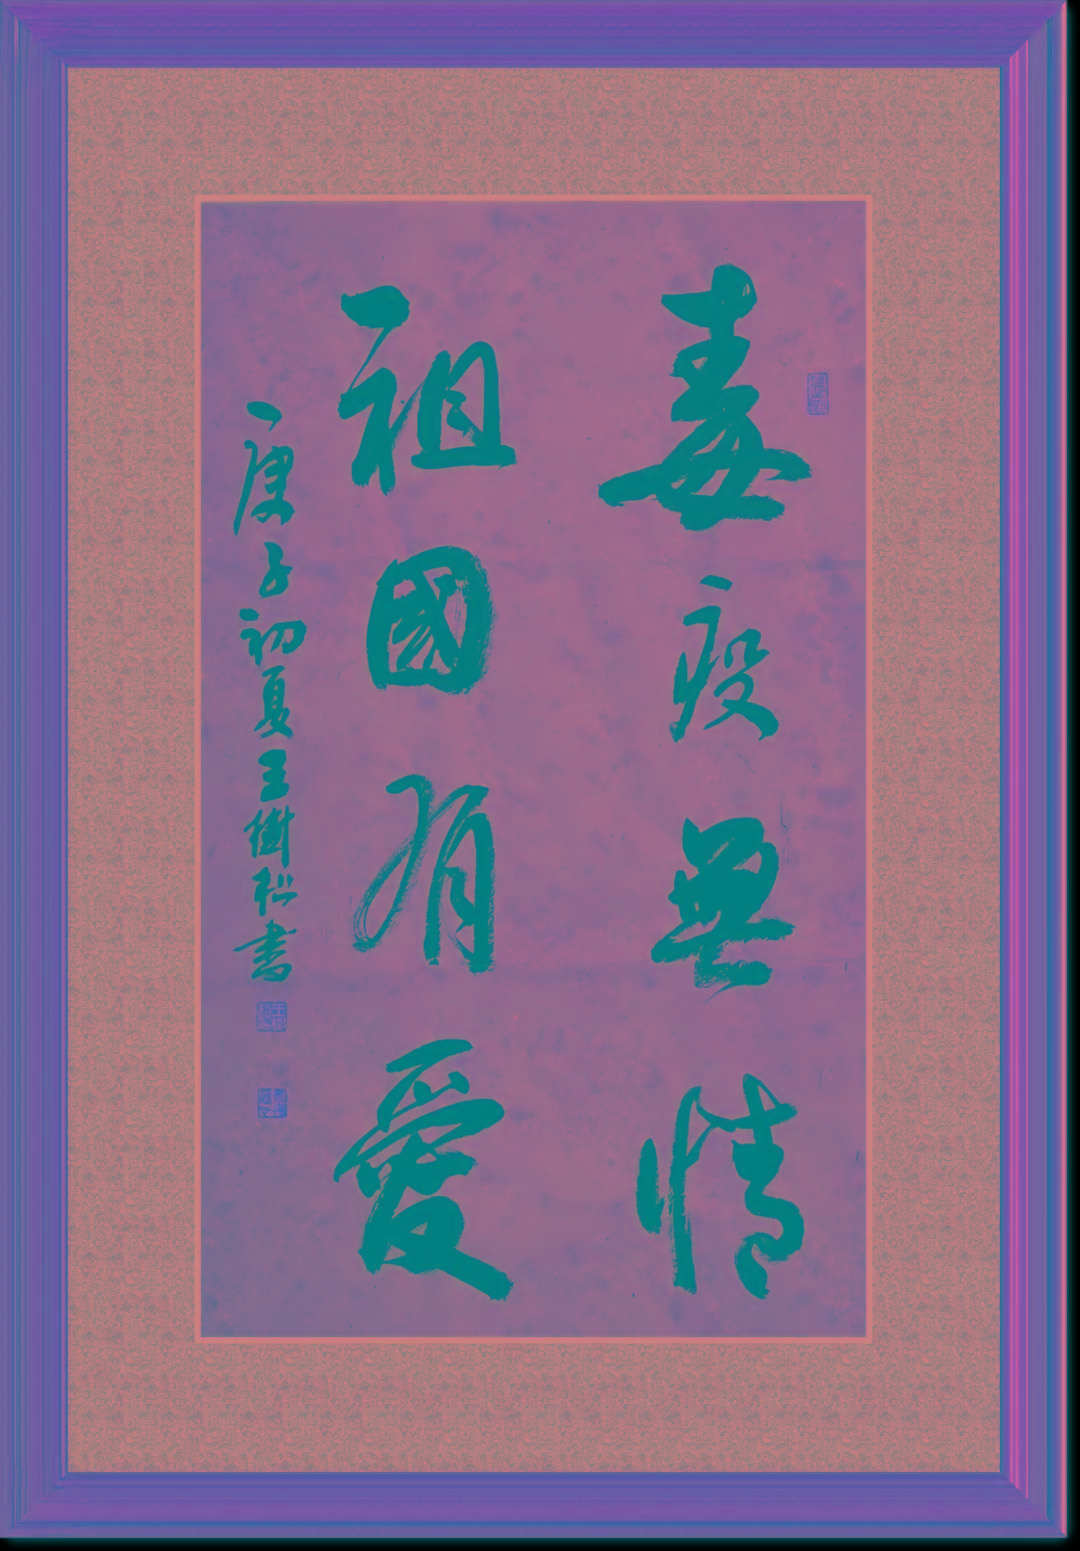 毒疫無情
祖國有愛
庚子初夏王樹松書